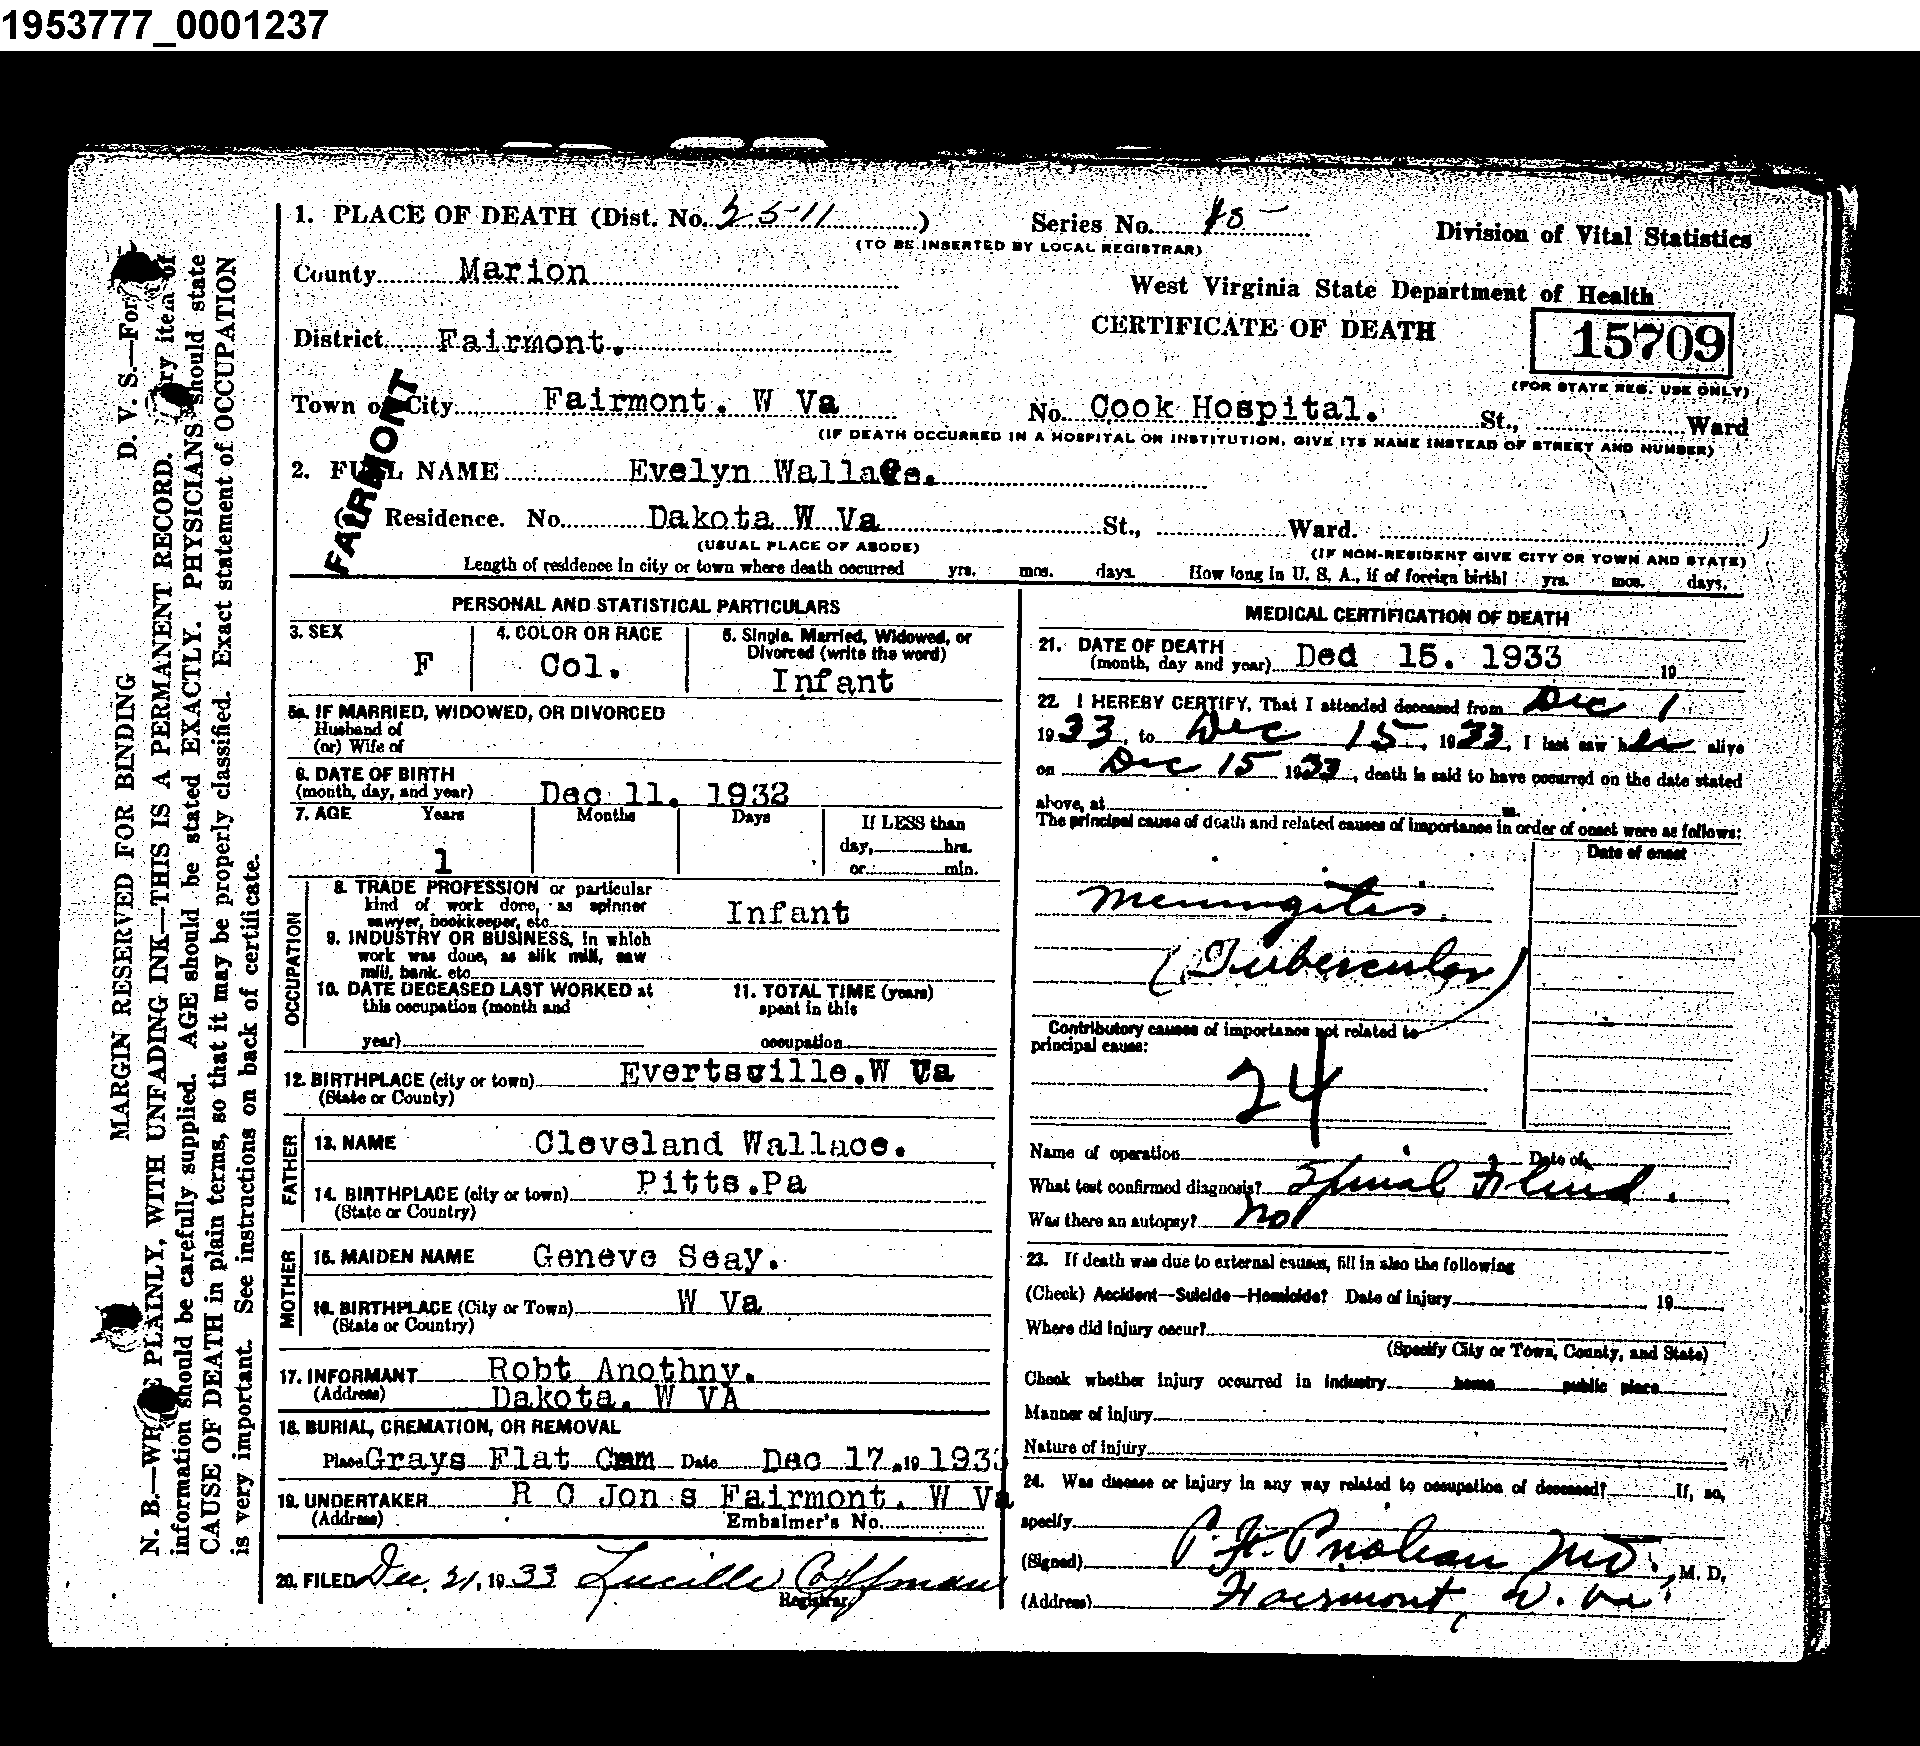 1953777_0001237
1. PLACE OF DEATH (Dist. No. 2511)
Series No.
Division of Vital Statistics
(TO BE INSERTED BY LOCAL REGISTRAR)
County Marion
West Virginia State Department of Health
CERTIFICATE OF DEATH
15709
(FOR STATE REG. USE ONLY)
District Fairmont.
Town or City Fairmont. W Va
No. Cook Hospital. St., Ward
(IF DEATH OCCURRED IN A HOSPITAL OR INSTITUTION, GIVE ITS NAME INSTEAD OF STREET AND NUMBER)
FAIRMONT
2. FULL NAME Evelyn Wallace.
Residence. No. Dakota W Va St., Ward.
(USUAL PLACE OF ABODE)
(IF NON-RESIDENT GIVE CITY OR TOWN AND STATE)
Length of residence in city or town where death occurred yrs. mos. days. How long in U. S. A., if of foreign birth? yrs. mos. days.
MARGIN RESERVED FOR BINDING D. V. S.—For
N. B.—WRITE PLAINLY, WITH UNFADING INK—THIS IS A PERMANENT RECORD. Every item of
information should be carefully supplied. AGE should be stated EXACTLY. PHYSICIANS should state
CAUSE OF DEATH in plain terms, so that it may be properly classified. Exact statement of OCCUPATION
is very important. See instructions on back of certificate.
PERSONAL AND STATISTICAL PARTICULARS
3. SEX
F
4. COLOR OR RACE
Col.
5. Single. Married, Widowed, or
Divorced (write the word)
Infant
5a. IF MARRIED, WIDOWED, OR DIVORCED
Husband of
(or) Wife of
6. DATE OF BIRTH
(month, day, and year) Dec 11. 1932
7. AGE Years Months Days If LESS than
day, hrs.
1
or min.
OCCUPATION
8. TRADE PROFESSION or particular
kind of work done, as spinner
sawyer, bookkeeper, etc. Infant
9. INDUSTRY OR BUSINESS, in which
work was done, as silk mill, saw
mill, bank. etc
10. DATE DECEASED LAST WORKED at
this occupation (month and
year)
11. TOTAL TIME (years)
spent in this
occupation
12. BIRTHPLACE (city or town) Evertsville.W Va
(State or County)
FATHER
13. NAME Cleveland Wallace.
14. BIRTHPLACE (city or town) Pitts.Pa
(State or Country)
MOTHER
15. MAIDEN NAME Geneve Seay.
16. BIRTHPLACE (City or Town) W Va
(State or Country)
17. INFORMANT Robt Anothny.
(Address) Dakota. W VA
18. BURIAL, CREMATION, OR REMOVAL
Place Grays Flat Cem Date Dec 17. 19 1933
19. UNDERTAKER R C Jon s Fairmont. W Va
(Address) Embalmer's No.
20. FILED Dec. 21, 1933 Lucille Coffman
Registrar
MEDICAL CERTIFICATION OF DEATH
21. DATE OF DEATH
(month, day and year) Ded 15. 1933 19
22. I HEREBY CERTIFY, That I attended deceased from Dec 1
1933, to Dec 15, 1933, I last saw her alive
on Dec 15 1933, death is said to have occurred on the date stated
above, at m.
The principal cause of death and related causes of importance in order of onset were as follows:
Date of onset
Meningitis.
(Tubercular)
Contributory causes of importance not related to
principal cause:
24
Name of operation Date of
What test confirmed diagnosis? Spinal Fluid.
Was there an autopsy? No
23. If death was due to external causes, fill in also the following
(Check) Accident—Suicide—Homicide? Date of injury 19
Where did injury occur?
(Specify City or Town, County, and State)
Check whether injury occurred in industry home public place
Manner of injury
Nature of injury
24. Was disease or injury in any way related to occupation of deceased? If, so,
specify
(Signed) P. H. Prioleau MD., M. D.
(Address) Fairmont, W. Va.